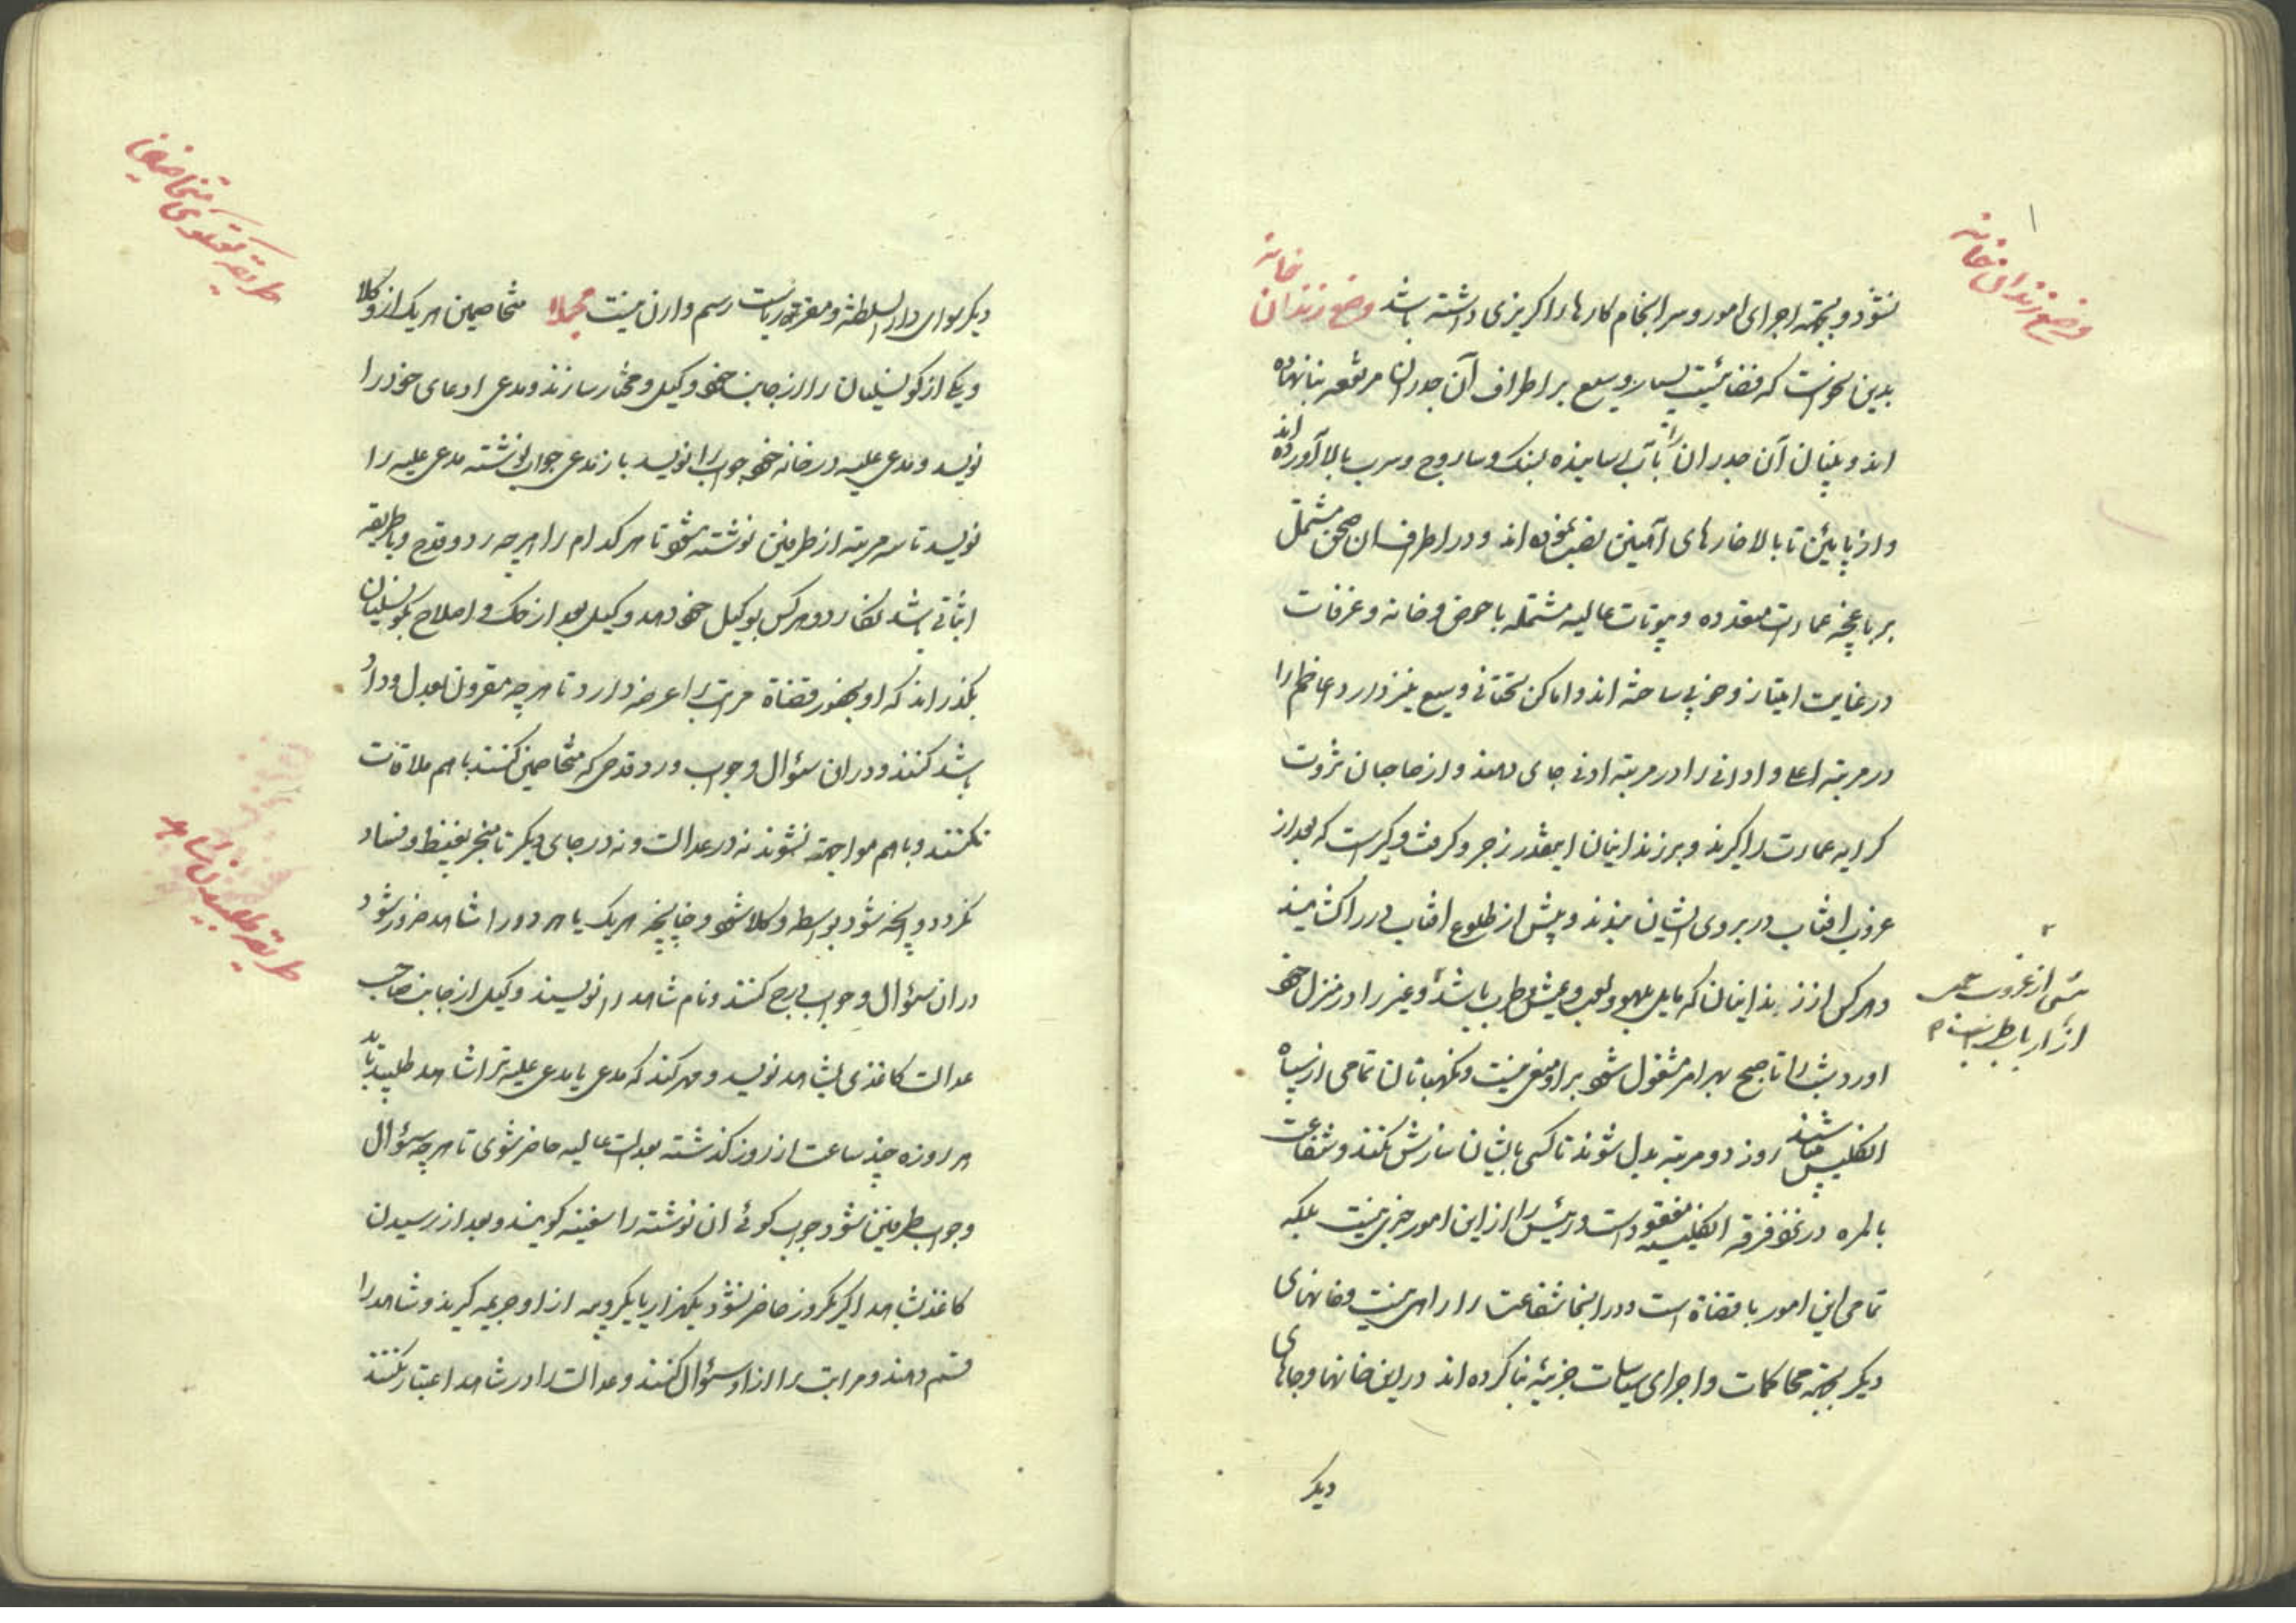 وضع زندان خانه
نشود و بجهته اجرای امور و سرانجام کارها را کریزی داشته باشد وضع زندان خانه
بدین نحو است که فضائیست بسیار وسیع بر اطراف آن جدران مرتفعه بنا نهاده
اند و بنیان آن جدران را تا بآب رسانیده بسنک و ساروج و سرب بالا آورده اند
و از پایین تا بالا خارهای آهنین نصب نموده اند و در اطراف ان صحن مشتمل
بر باغچه عمارات متعدده و بیوتات عالیه مشتمله با حوض و خانه و غرفات
در غایت امتیاز و خوبی ساخته اند و اماکن تحتانی وسیع نیز دارد اعاظم را
در مرتبه اعلی و ادانی را در مرتبه ادنی جای دهند و از صاحبان ثروت
کرایه عمارت را کیرند و بر زندانیان اینقدر زجر و کرفت و کیر است که بعد از
غروب افتاب در بروی ایشان بندند و پیش از طلوع افتاب در را کشایند
و هر کس از زندانیان که مایل بلهو و لعب و عیش و طرب باشد و غیر را در منزل خود
شبی از غروب شمس
از ارباب طرب
اورد شب را تا صبح بهر امر مشغول شود بر او منعی نیست و نکهبانان تمامی از سپاه
انکلیس میباشند روز دو مرتبه بدل شوند تا کسی با ایشان سازش نکند و شفاعت
بالمره در نزد فرقه انکلیسیه مفقود است و رئیس را از این امور خبری نیست بلکه
تمامی این امور با قضاة است و در انجا شفاعت را راهی نیست و خانهای
دیکر بجهته محاکمات و اجرای سیاسات جزئیه بنا کرده اند در این خانها و جاهای
دیکر
طریقه کفتکوی متخاصمین
دیکر سوای دار السلطنه و مقر ریاست رسم وارن نیست مجملا متخاصمین هر یک از وکلا
و یکی از کونسلیان را از جانب خود وکیل و مختار سازند و مدعی ادعای خود را
نویسد و مدعی علیه در خانه خود جواب را نویسد باز مدعی جواب نوشته مدعی علیه را
نویسد تا سه مرتبه از طرفین نوشته شود تا هر کدام را هر چه رد و قدح و یا طریقه
اثباتی باشد بنکارد و هر کس بوکیل خود دهد و وکیل بعد از حک و اصلاح بکونسلیان
بکذراند که او بحضور قضاة مراتب را عرضه دارد تا هر چه مقرون بعدل و داد
باشد کنند و در ان سؤال و جواب و رد و قدحی که متخاصمین کنند با هم ملاقات
نکنند و با هم مواجهه نشوند نه در عدالت و نه در جای دیکر تا منجر بغیظ و فساد
نکردد و انچه شود بواسطه وکلا شود و چنانچه هر یک یا هر دو را شاهد ضرور شود
طریقه طلبیدن شاهد
در ان سؤال و جواب درج کنند و نام شاهد را نویسند وکیل از جانب صاحب
عدالت کاغذی بشاهد نویسد و مهر کند که مدعی یا مدعی علیه ترا شاهد طلبید باید
هر روزه چند ساعت از روز کذشته بعدالت عالیه حاضر شوی تا هر چه سؤال
و جواب طرفین شود جواب کوئی ان نوشته را سفینه کویند و بعد از رسیدن
کاغذ شاهد اکر یکروز حاضر نشود یکهزار یا یکروپیه از او جریمه کیرند و شاهد را
قسم دهند و مراتب را از او سؤال کنند و عدالت را در شاهد اعتبار نکنند